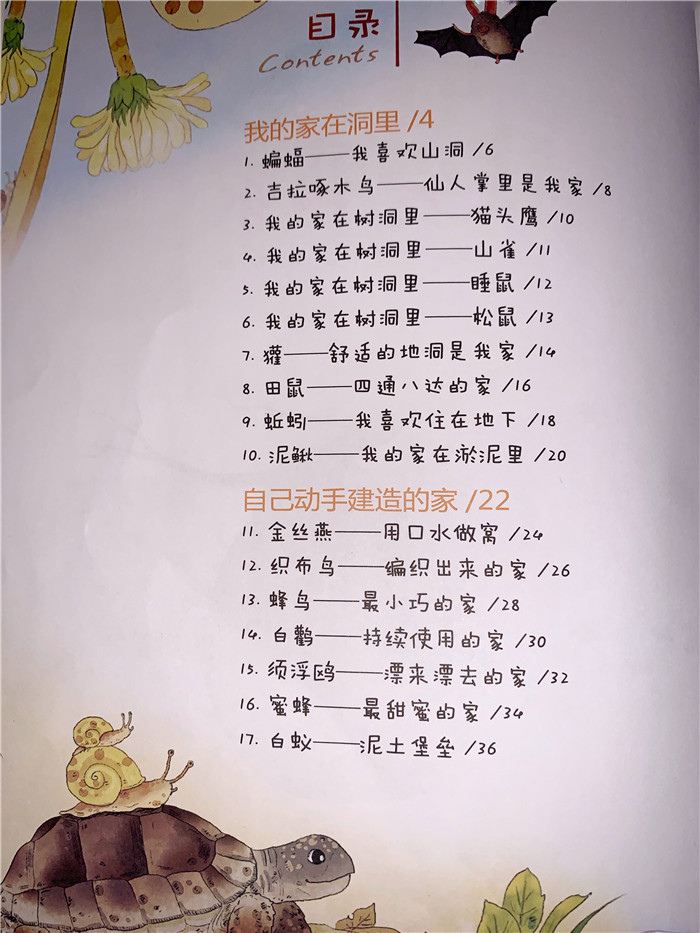 目录
Contents
我的家在洞里 /4
1. 蝙蝠——我喜欢山洞 /6
2. 吉拉啄木鸟——仙人掌里是我家 /8
3. 我的家在树洞里——猫头鹰 /10
4. 我的家在树洞里——山雀 /11
5. 我的家在树洞里——睡鼠 /12
6. 我的家在树洞里——松鼠 /13
7. 獾——舒适的地洞是我家 /14
8. 田鼠——四通八达的家 /16
9. 蚯蚓——我喜欢住在地下 /18
10. 泥鳅——我的家在淤泥里 /20
自己动手建造的家 /22
11. 金丝燕——用口水做窝 /24
12. 织布鸟——编织出来的家 /26
13. 蜂鸟——最小巧的家 /28
14. 白鹳——持续使用的家 /30
15. 须浮鸥——漂来漂去的家 /32
16. 蜜蜂——最甜蜜的家 /34
17. 白蚁——泥土堡垒 /36